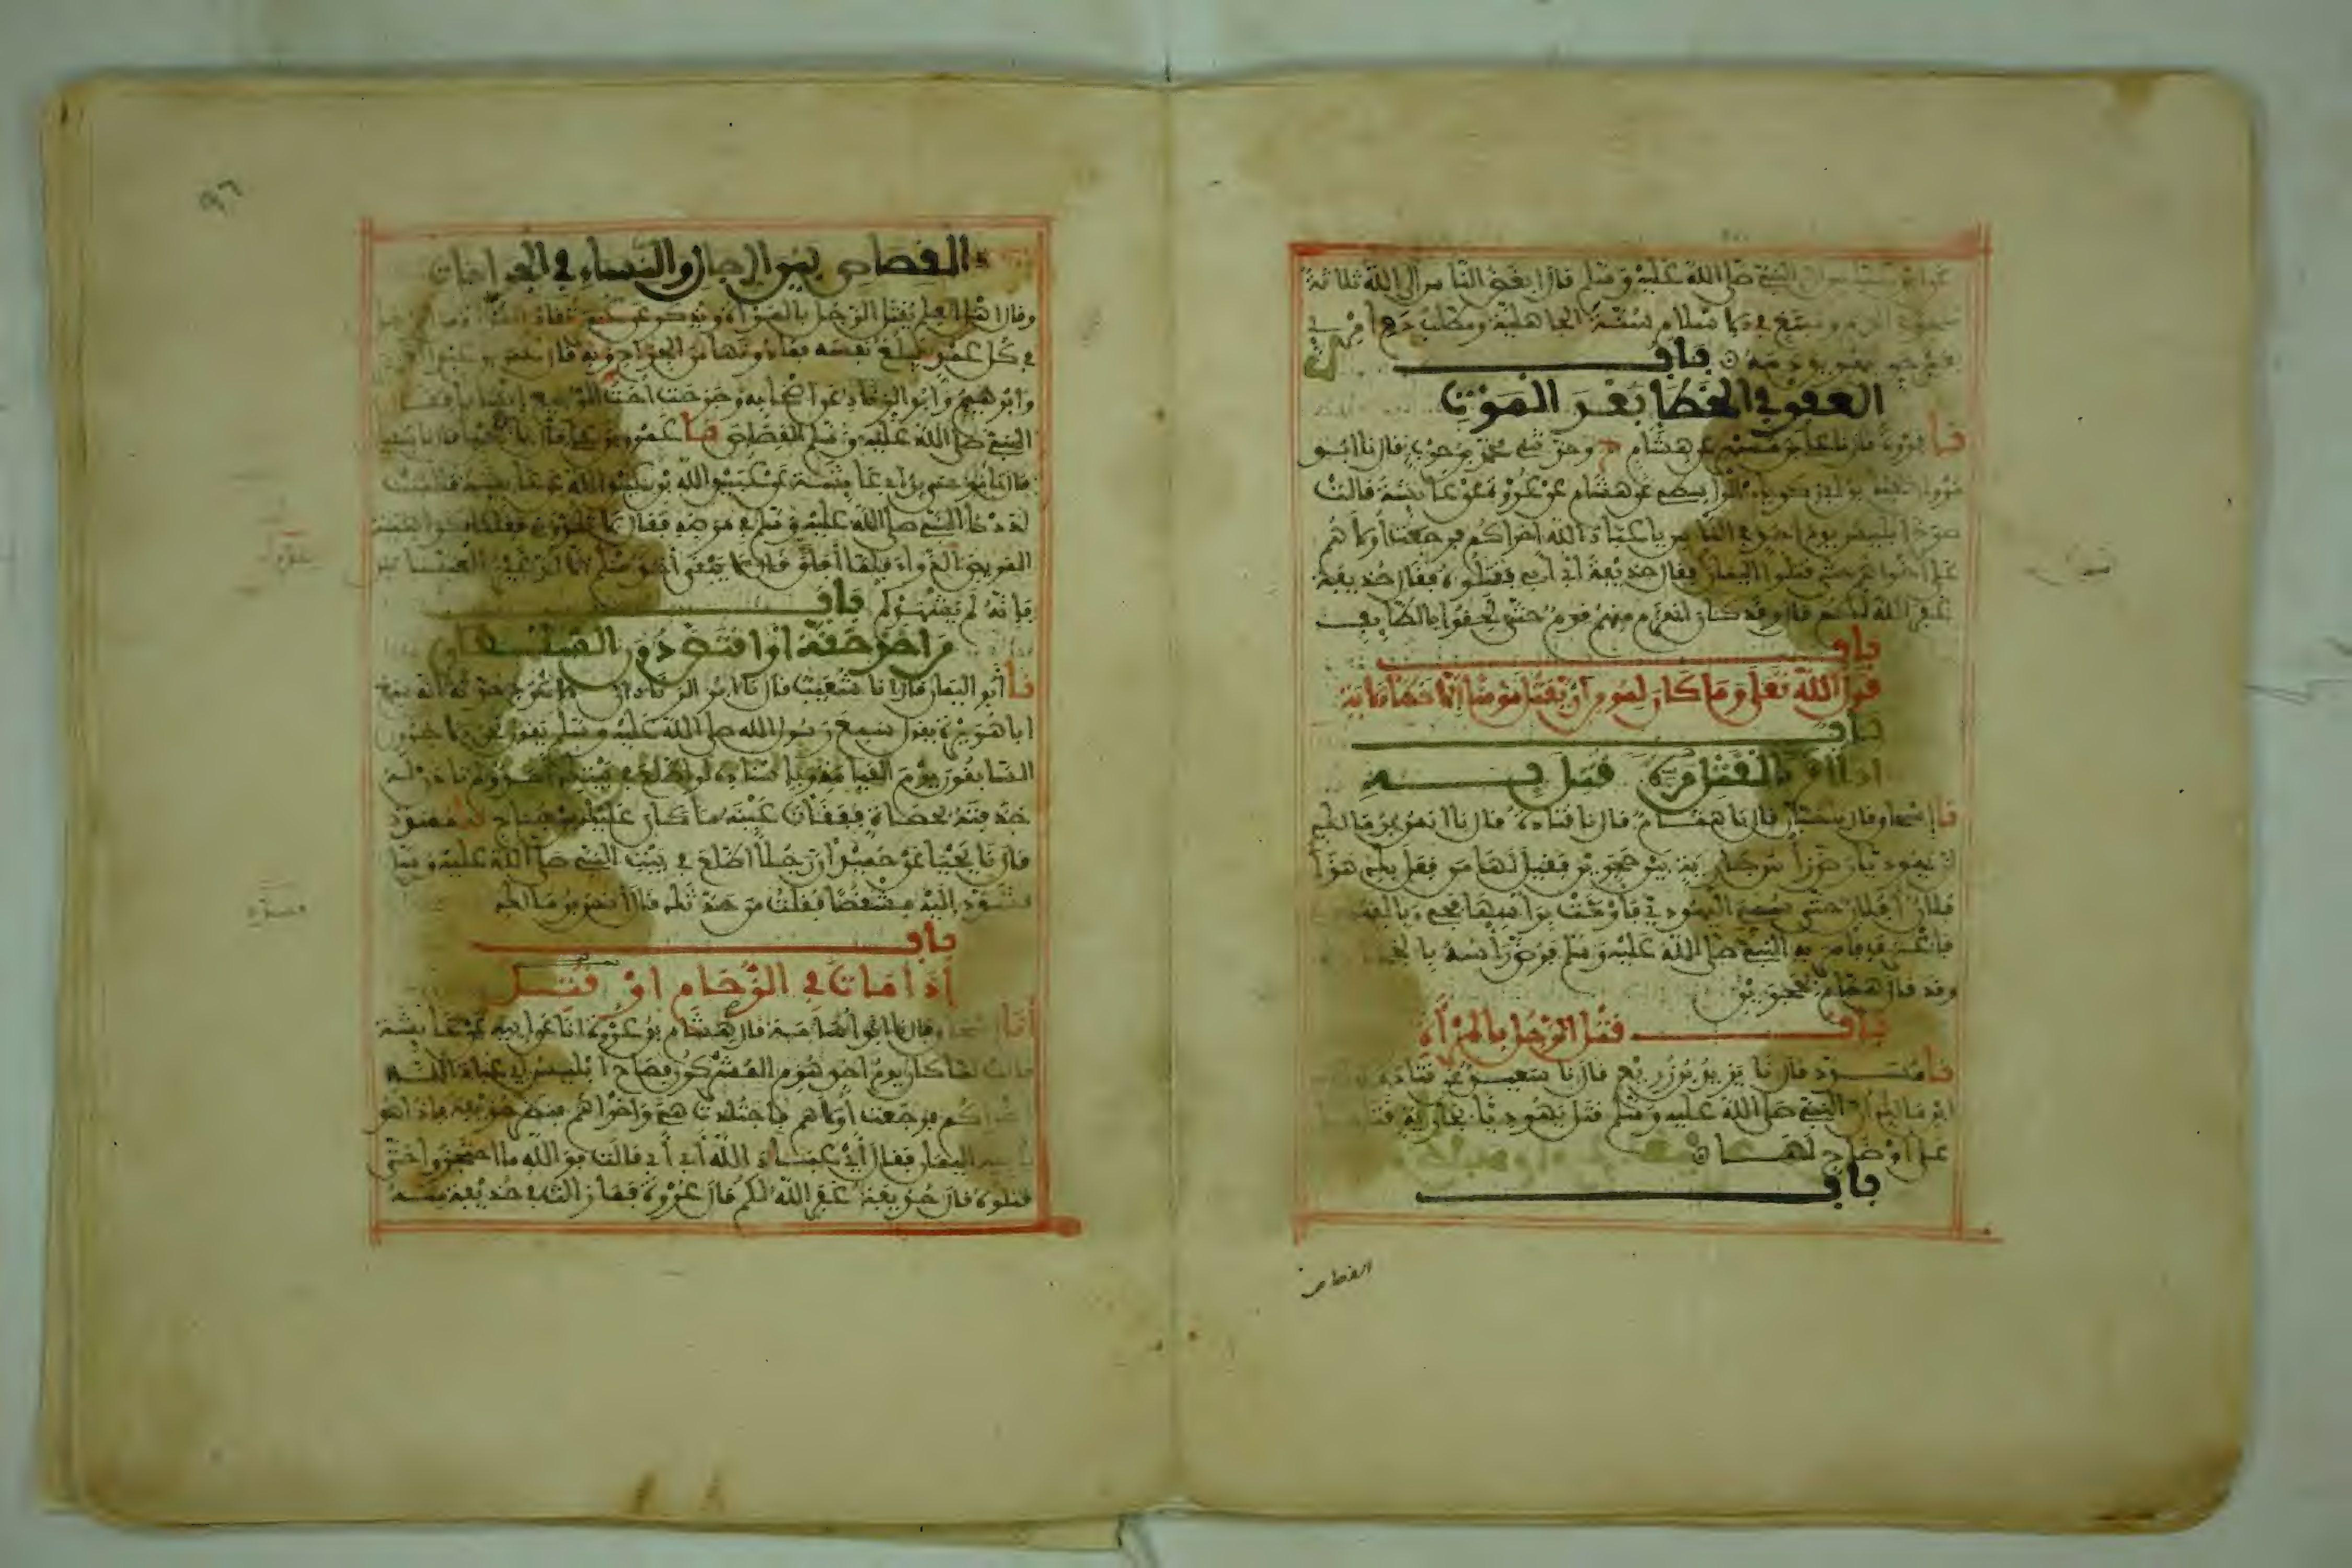 النبي صلى الله عليه وسلم قال ابغض الناس الى الله ثلاثة
في الاسلام سنة الجاهلية ومطلب دم امرئ
دمه باب
العفو في الخطا بعد الموت
نا فروة قال نا علي بن مسهر عن هشام ح وحدثني محمد بن حرب قال نا ابو
مروان يحيى بن ابي زكرياء الواسطي عن هشام عن عروة عن عائشة قالت
صرخ ابليس يوم احد في الناس يا عباد الله اخراكم فرجعت اولاهم
على اخراهم حتى قتلوا اليمان فقال حذيفة ابي ابي فقتلوه فقال حذيفة
غفر الله لكم قال وقد كان انهزم منهم قوم حتى لحقوا بالطائف
باب
قول الله تعلى وما كان لمومن ان يقتل مومنا الا خطأ الاية
باب
اذا اقر بالقتل مرة قتل به
نا اسحاق قال نا حبان قال نا همام قال نا قتادة قال نا انس بن مالك
ان يهوديا رض راس جارية بين حجرين فقيل لها من فعل بك هذا
افلان افلان حتى سمي اليهودي فاومت براسها فجيء باليهودي
فاعترف فامر به النبي صلى الله عليه وسلم فرض راسه بالحجارة
وقد قال همام بحجرين
باب قتل الرجل بالمرأة
نا مسدد قال نا يزيد بن زريع قال نا سعيد عن قتادة
ابن مالك ان النبي صلى الله عليه وسلم قتل يهوديا بجارية قتلها
على اوضاح لها
باب
القصاص
القصاص بين الرجال والنساء في الجراحات
وقال اهل العلم يقتل الرجل بالمرأة ويذكر عن عمر تقاد المرأة من الرجل
في كل عمد يبلغ نفسه فما دونها من الجراح وبه قال عمر بن عبد العزيز
وابرهيم وابو الزناد عن اصحابه وجرحت اخت الربيع انسانا فقال
النبي صلى الله عليه وسلم القصاص نا عمرو بن علي قال نا يحيى قال نا سفيان
قال نا موسى بن ابي عائشة عن عبيد الله بن عبد الله عن عائشة قالت
لددنا النبي صلى الله عليه وسلم في مرضه فقال لا تلدوني فقلنا كراهية
المريض الدواء فلما افاق قال لا يبقى احد منكم الا لد غير العباس
فانه لم يشهدكم باب
من اخذ حقه او اقتص دون السلطان
نا ابو اليمان قال نا شعيب قال نا ابو الزناد ان الاعرج حدثه انه سمع
ابا هريرة يقول سمع رسول الله صلى الله عليه وسلم يقول نحن الاخرون
السابقون يوم القيامة وباسناده لو اطلع في بيتك احد ولم تاذن له
خذفته بحصاة ففقأت عينه ما كان عليك من جناح نا مسدد
قال نا يحيى عن حميد ان رجلا اطلع في بيت النبي صلى الله عليه وسلم
فسدد اليه مشقصا فقلت من حدثك قال انس بن مالك
باب
اذا مات في الزحام او قتل
انا اسحاق قال نا ابو اسامة قال هشام بن عروة انا عن ابيه عن عائشة
قالت لما كان يوم احد هزم المشركون فصاح ابليس اي عباد الله
اخراكم فرجعت اولاهم فاجتلدت هي واخراهم فنظر حذيفة فاذا هو
بابيه اليمان فقال اي عباد الله ابي ابي قالت فوالله ما احتجزوا حتى
قتلوه قال حذيفة غفر الله لكم قال عروة فما زالت في حذيفة منه